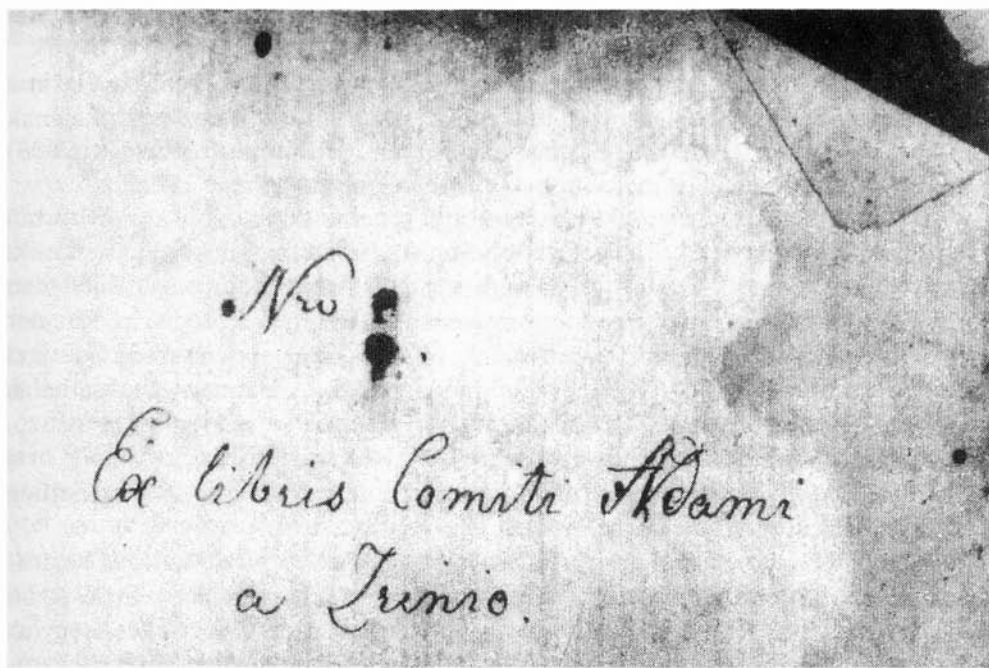 Nro
Ex libris Comiti Adami
a Zrinio.